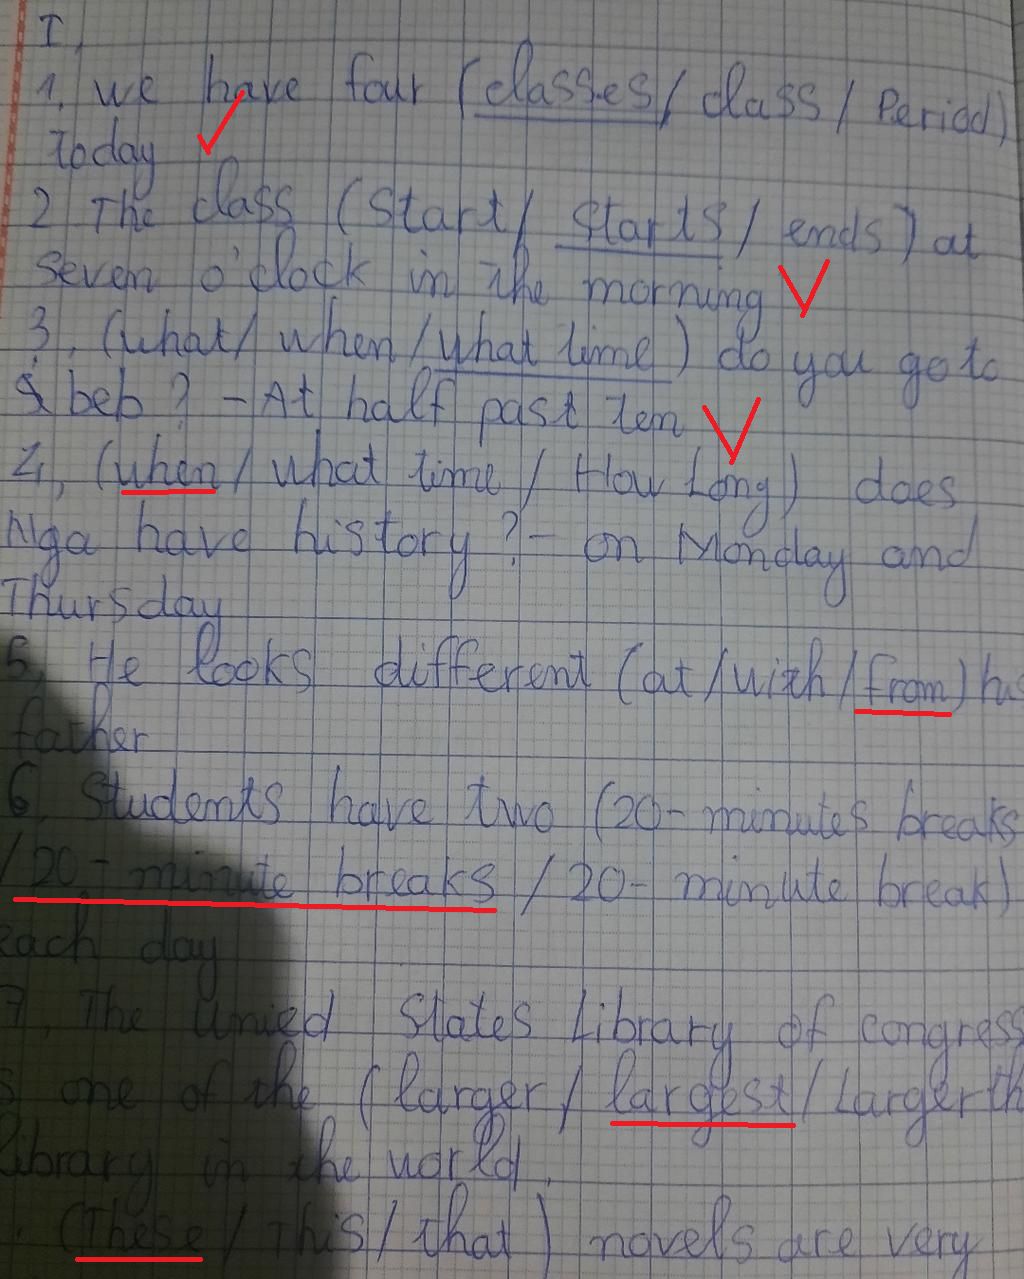 I,
1, we have four (classes / class / Period)
today
2 The class (Start / starts / ends) at
seven o'clock in the morning
3, (what / when / what time) do you go to
beb? - At half past ten
4, (when / what time / How Long) does
Nga have history? - on Monday and
Thursday
5, He looks different (at / with / from) his
father
6, Students have two (20- minutes breaks
/ 20 - minute breaks / 20- minute break)
each day
7, The Unied States Library of congress
s one of the (larger / largest / Larger th
library in the world.
(These / This / that) novels are very